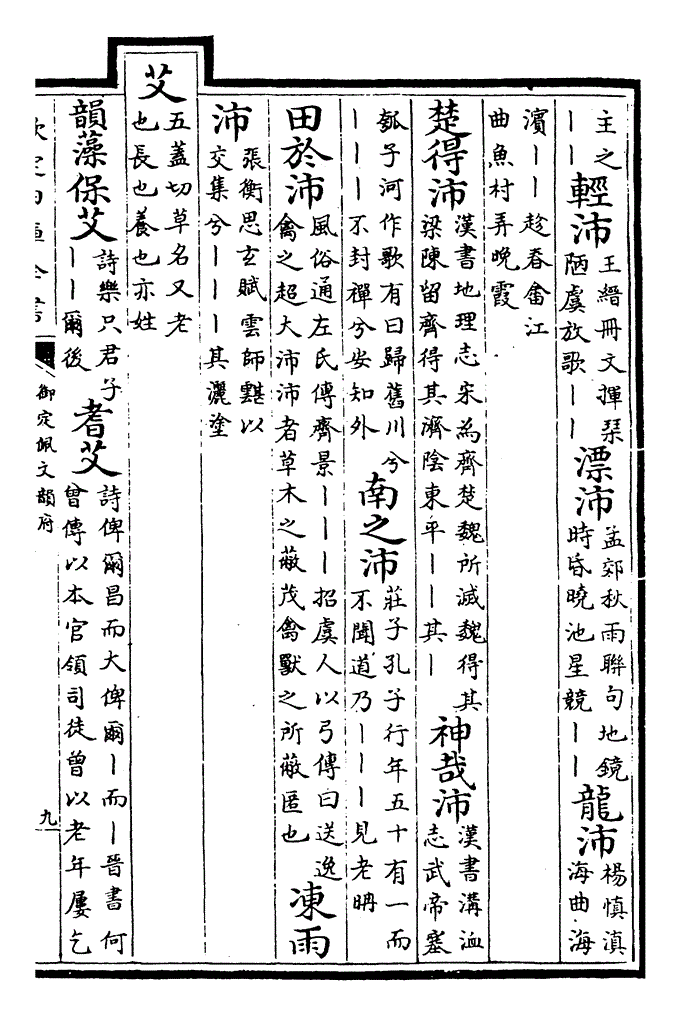 主之
｜｜輕沛王縉冊文揮琴
陋虞放歌｜｜漂沛孟郊秋雨聯句地鏡
時昏曉池星競｜｜龍沛楊慎滇
海曲海
濱｜｜趁春畬江
曲魚村弄晚霞
楚得沛漢書地理志宋為齊楚魏所滅魏得其
梁陳留齊得其濟陰東平｜｜其｜神哉沛漢書溝洫
志武帝塞
瓠子河作歌有曰歸舊川兮
｜｜｜不封禪兮安知外南之沛莊子孔子行年五十有一而
不聞道乃｜｜｜見老聃
田於沛風俗通左氏傳齊景｜｜｜招虞人以弓傳曰送逸
禽之超大沛沛者草木之蔽茂禽獸之所蔽匿也凍雨
沛張衡思玄賦雲師䨴以
交集兮｜｜｜其灑塗
艾五蓋切草名又老
也長也養也亦姓
韻藻保艾詩樂只君子
｜｜爾後耆艾詩俾爾昌而大俾爾｜而｜晉書何
曾傳以本官領司徒曾以老年屢乞
御定佩文韻府
九